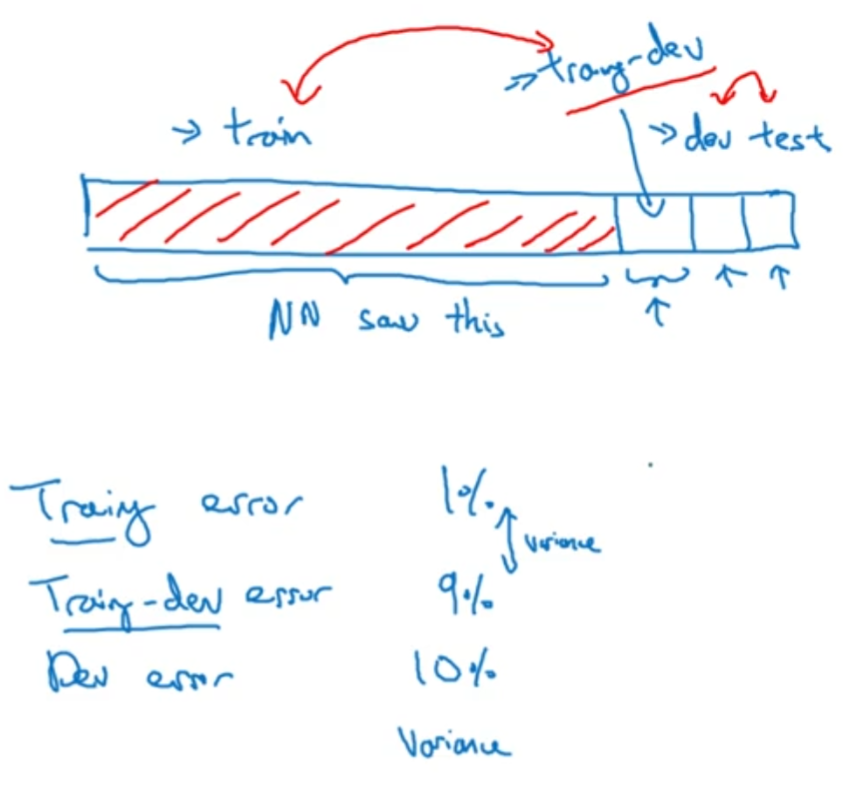 traing-dev
→ train
→ dev test
NN saw this
Traing error 1%
variance
Traing-dev error 9%
Dev error 10%
Variance